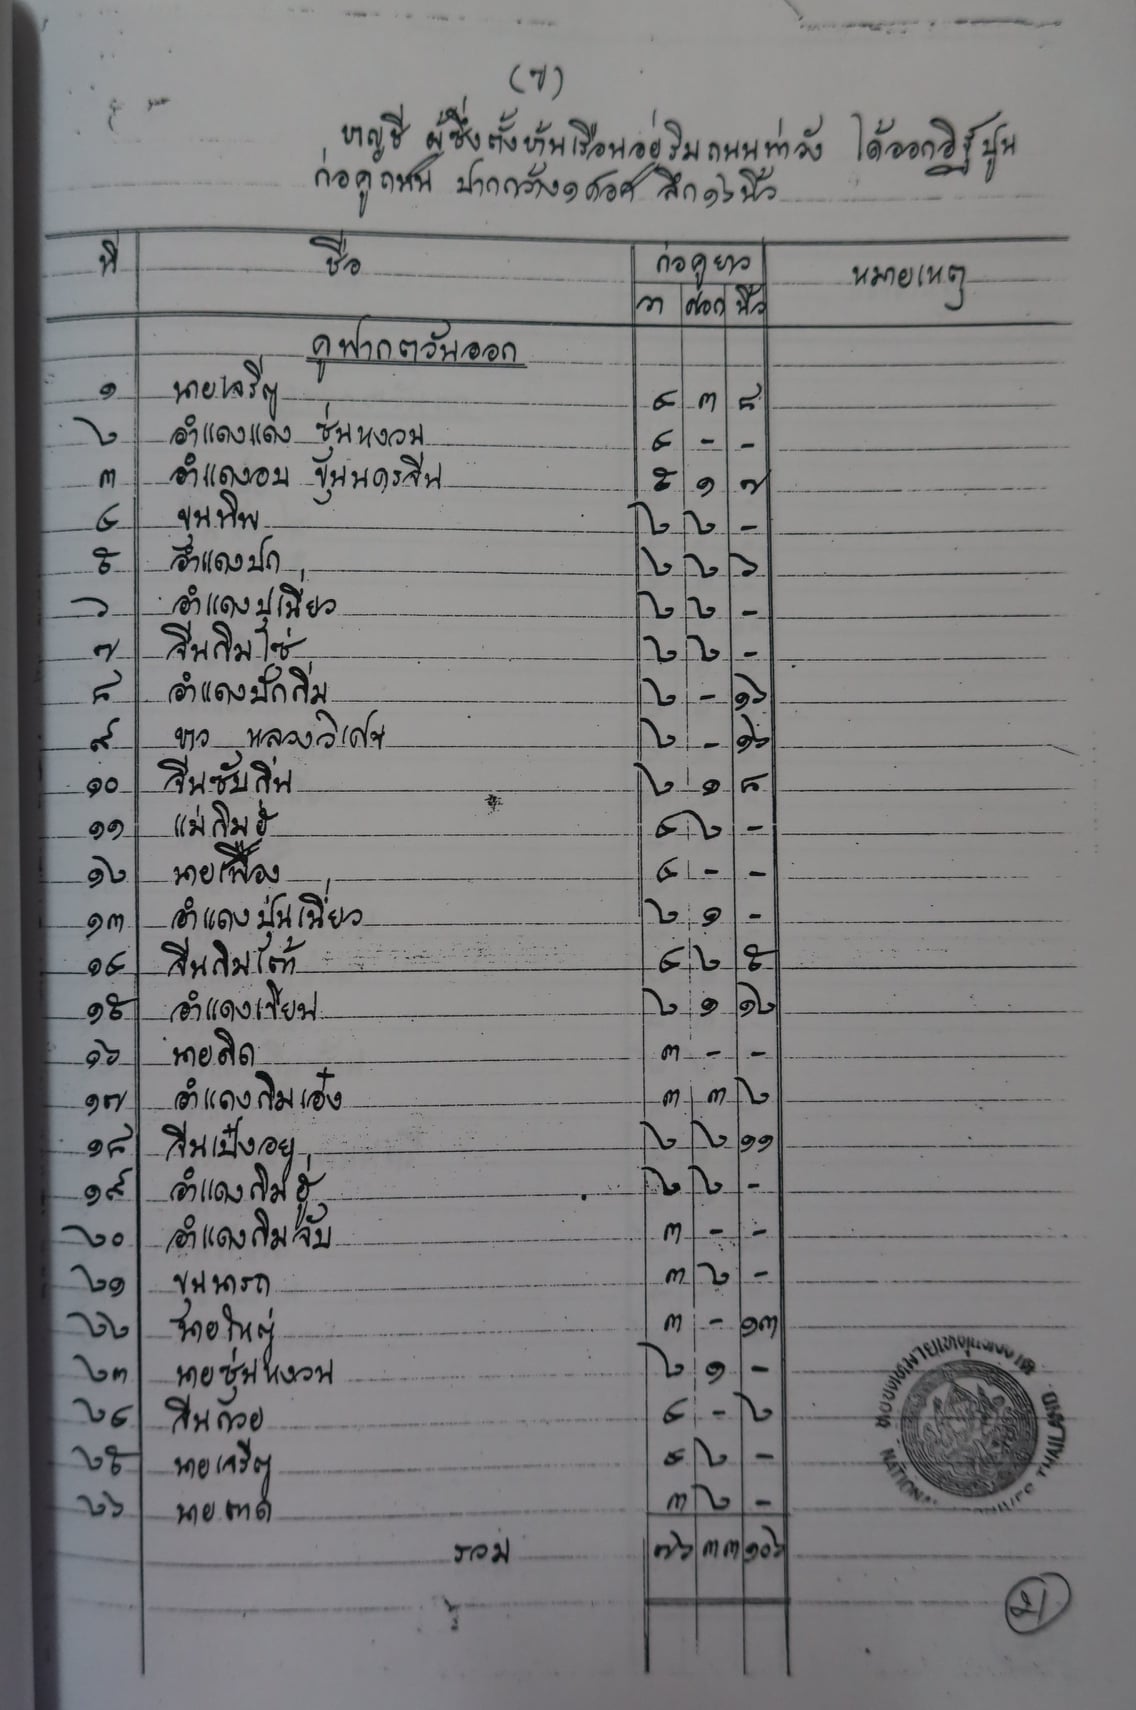 (ซ)
บาญชี ผู้ซึ่งตั้งบ้านเรือนอยู่ริมถนนท่าวัง ได้ออกอิฐปูน
ก่อคูถนน ปากกว้าง ๑ ศอก ลึก ๑๖ นิ้ว
ที่ ชื่อ ก่อคูยาว หมายเหตุ
วา ศอก นิ้ว
คูฟากตวันออก
๑ นายเจริญ ๔ ๓ ๘
๒ อำแดงแดง ซุ่นหงวน ๔ - -
๓ อำแดงอบ ขุนนครจีน ๕ ๑ ๗
๔ ขุนทิพ ๒ ๒ -
๕ อำแดงปก ๒ ๒ ๖
๖ อำแดงปุเนี่ยว ๒ ๒ -
๗ จีนลิมไซ่ ๒ ๒ -
๘ อำแดงปักลิ่ม ๒ - ๑๖
๙ บาว หลวงวิเศษ ๒ - ๑๖
๑๐ จีนซับลิ่น ๒ ๑ ๘
๑๑ แม่ลิมฮู่ ๔ ๒ -
๑๒ นายเฟื่อง ๔ - -
๑๓ อำแดงปุ่นเนี่ยว ๒ ๑ -
๑๔ จีนลิมไต้ ๔ ๒ ๕
๑๕ อำแดงเขียน ๒ ๑ ๑๒
๑๖ นายลิด ๓ - -
๑๗ อำแดงลิมเอ๋ง ๓ ๓ ๒
๑๘ จีนเป๋งอยู ๒ ๒ ๑๑
๑๙ อำแดงลิมฮู่ ๒ ๒ -
๒๐ อำแดงลิมจับ ๓ - -
๒๑ ขุนนารถ ๓ ๒ -
๒๒ นายใหญ่ ๓ - ๑๓
๒๓ นายซุ่นหงวน ๒ ๑ -
๒๔ จีนก๊วย ๔ - ๒
๒๕ นายเจริญ ๔ ๒ -
๒๖ นายเทด ๓ ๒ -
รวม ๗๖ ๓๓ ๑๐๖
หอจดหมายเหตุแห่งชาติ
NATIONAL ARCHIVES THAILAND